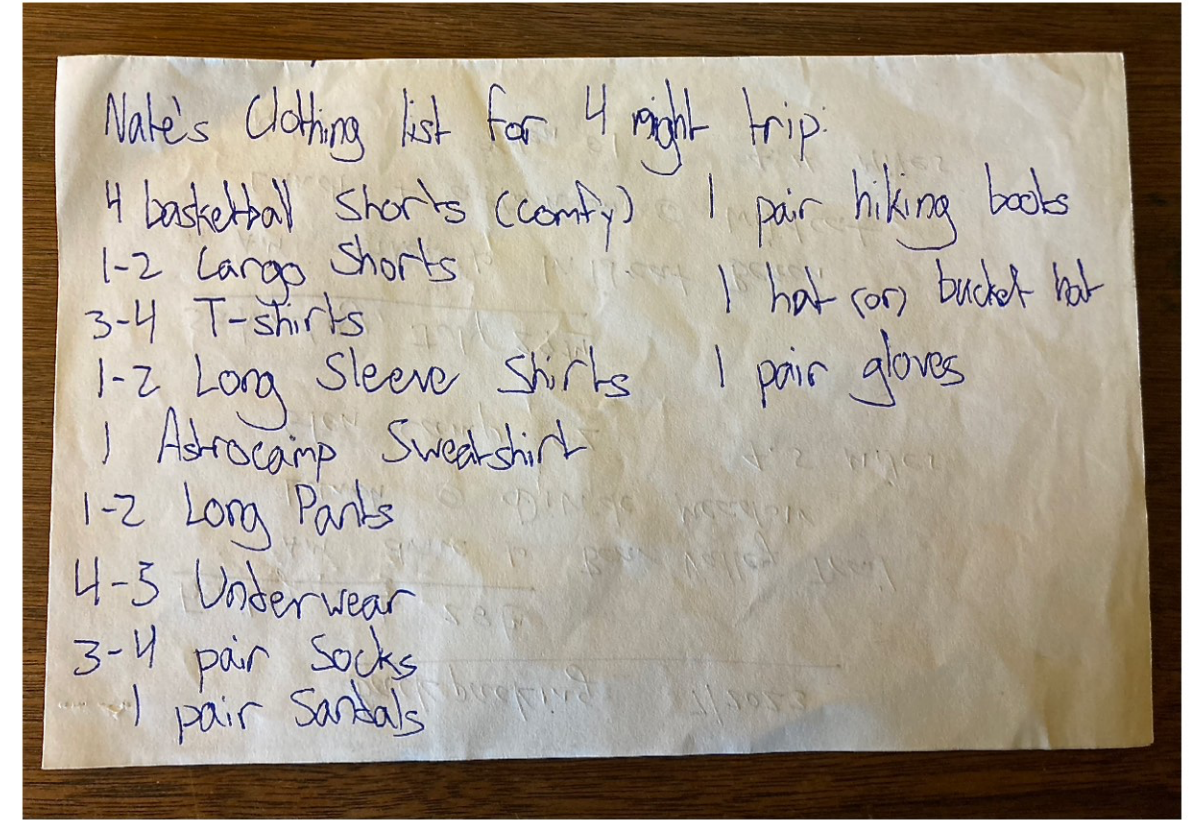 Nate's Clothing list for 4 night trip:
4 basketball shorts (comfy)
1-2 Cargo Shorts
3-4 T-shirts
1-2 Long Sleeve Shirts
1 Astrocamp Sweatshirt
1-2 Long Pants
4-5 Underwear
3-4 pair Socks
1 pair Sandals
1 pair hiking boots
1 hat (or) bucket hat
1 pair gloves